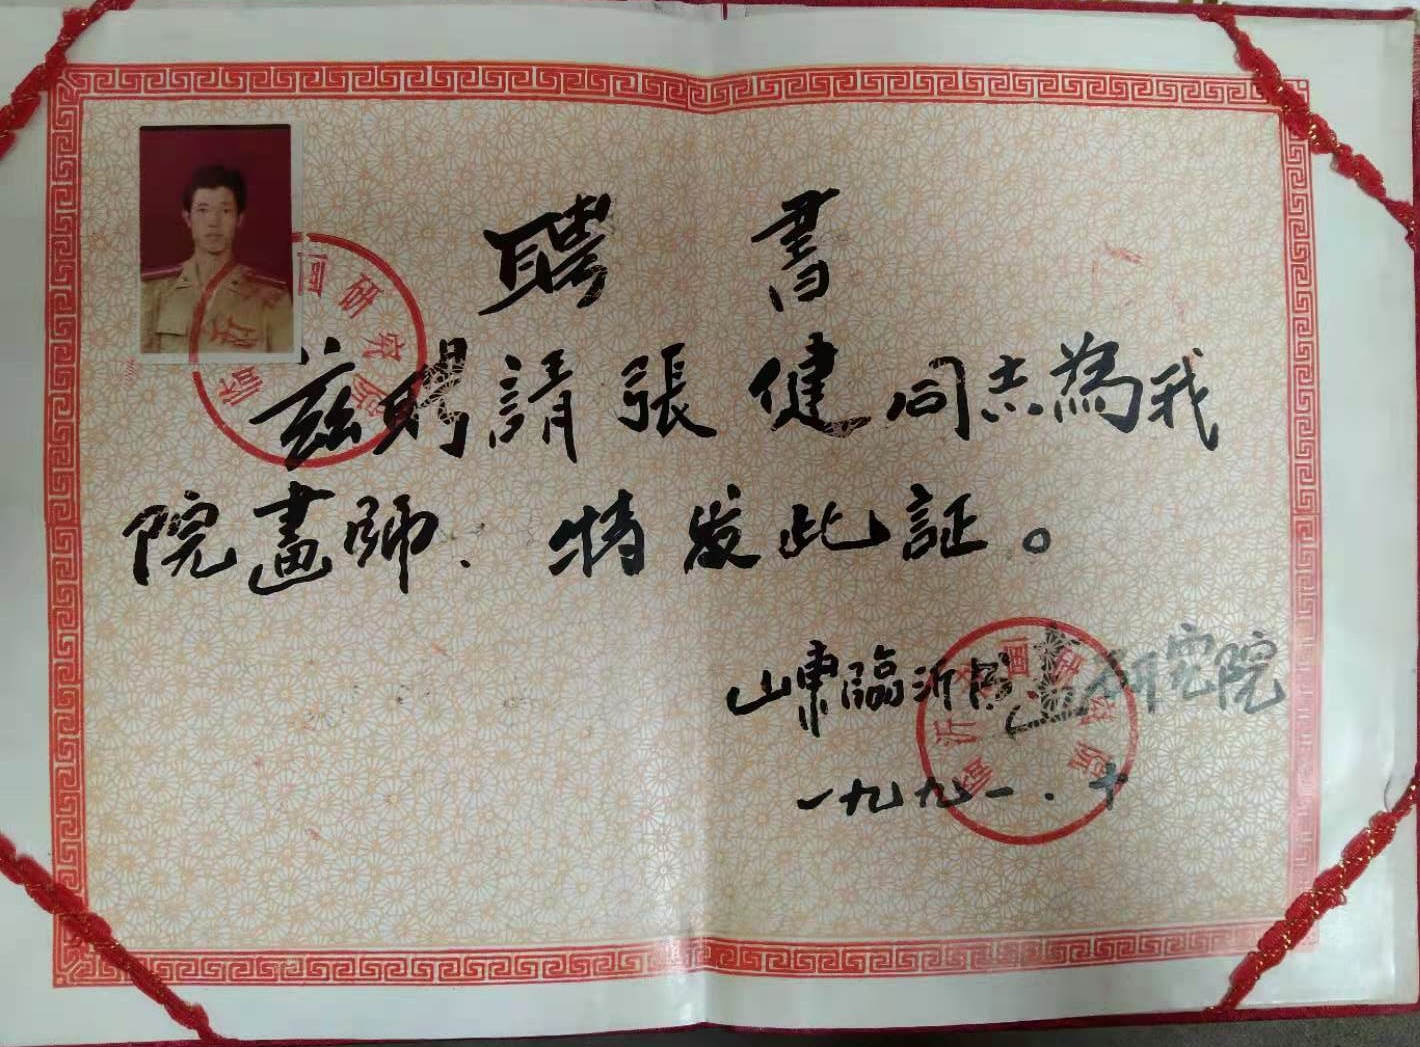 聘書
兹聘請張健同志為我
院畫師.特发此証。
山東臨沂国畫研究院
一九九一.十